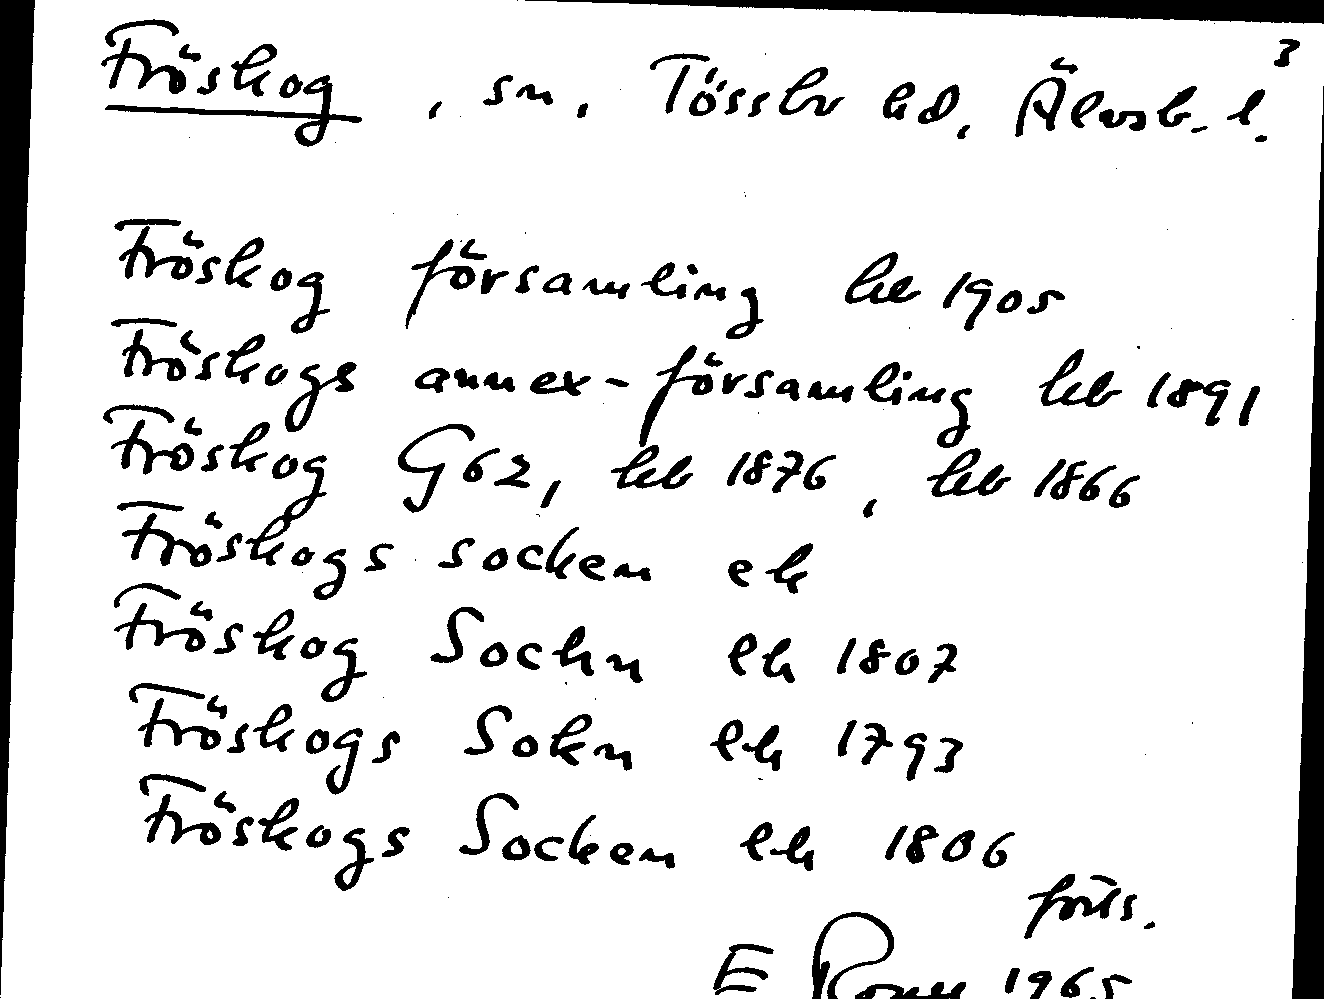 3
Fröskog, sn, Tössbo hd, Älvsb. l.
Fröskog församling kb 1905
Fröskogs annex-församling kb 1891
Fröskog G62, kb 1876, kb 1866
Fröskogs socken ek
Fröskog Sockn lk 1807
Fröskogs Sokn lk 1793
Fröskogs Socken lk 1806
forts.
E 1965